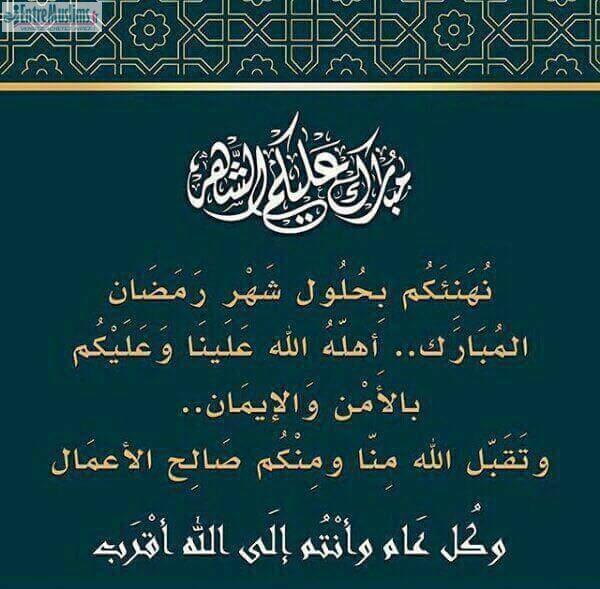 EntreMuslims
مبارك عليكم الشهر
نُهَنِئَكُم بِحُلُول شَهْر رَمَضَان
المُبَارَك.. أهلّهُ الله عَلَينَا وَعَلَيْكُم
بالأَمْن وَالإيمَان..
وتَقَبّل الله مِنّا ومِنْكُم صَالِح الأعمَال
وكُل عَام وأنْتُم إلَى الله أقْرَب